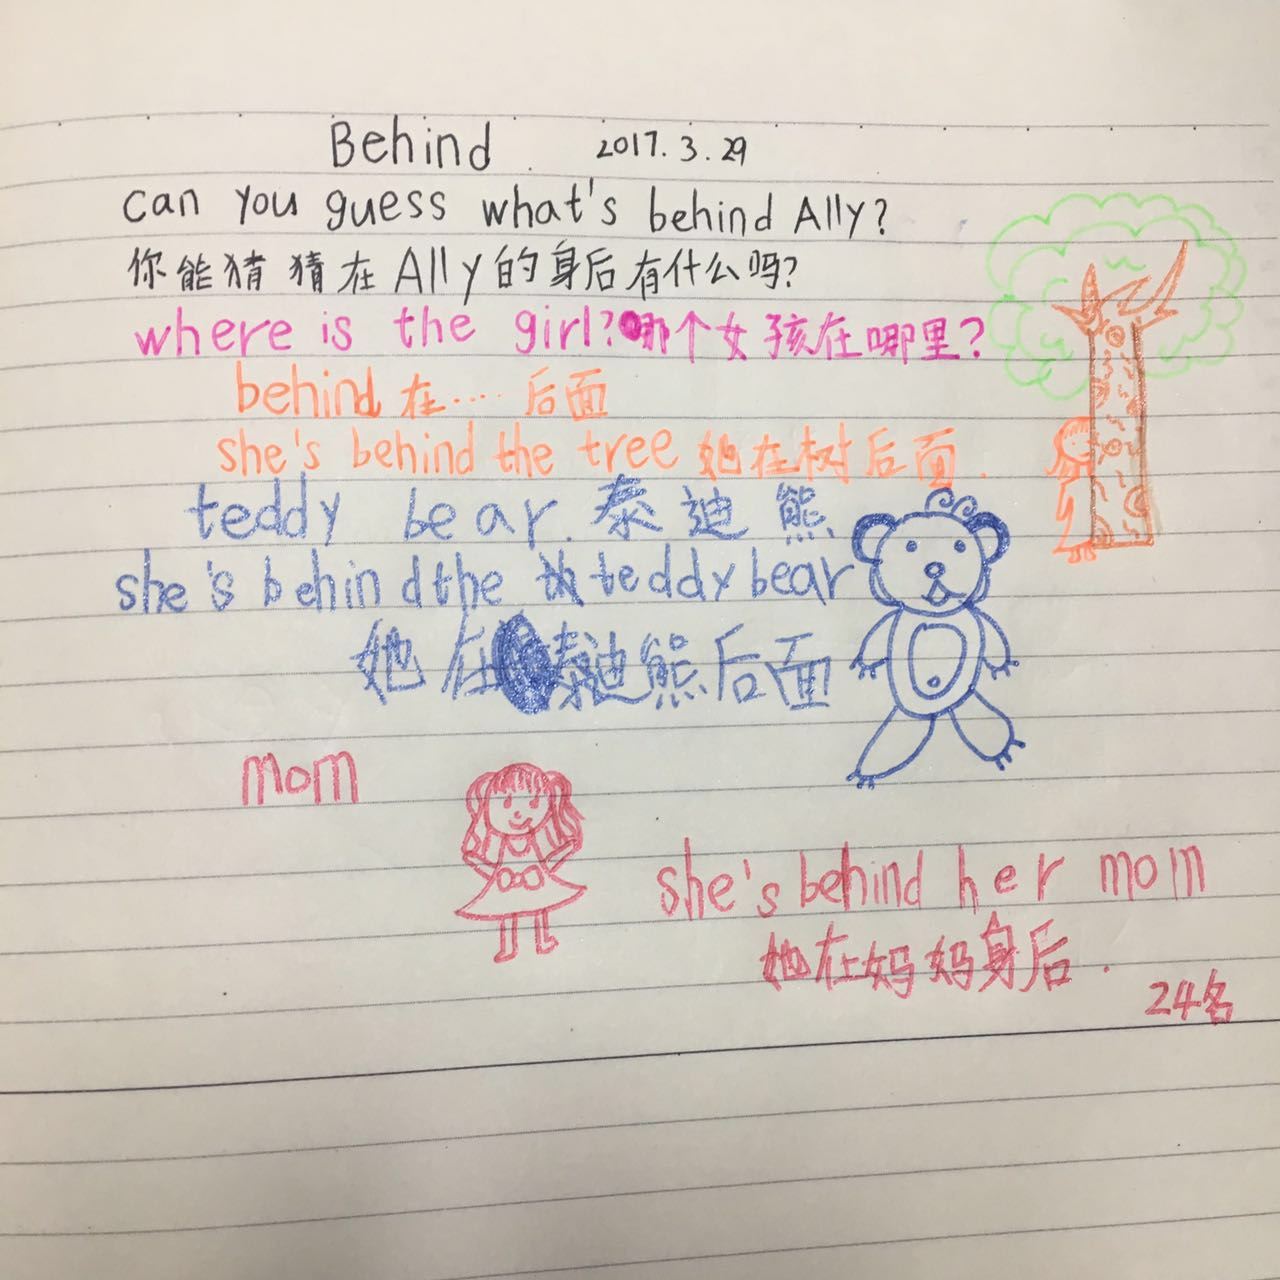 Behind 2017.3.29
can you guess what's behind Ally?
你能猜猜在Ally的身后有什么吗?
where is the girl?那个女孩在哪里?
behind 在····后面
she's behind the tree 她在树后面.
teddy bear.泰迪熊
she's behind the teddy bear
她在泰迪熊后面
mom
she's behind her mom
她在妈妈身后.
24名